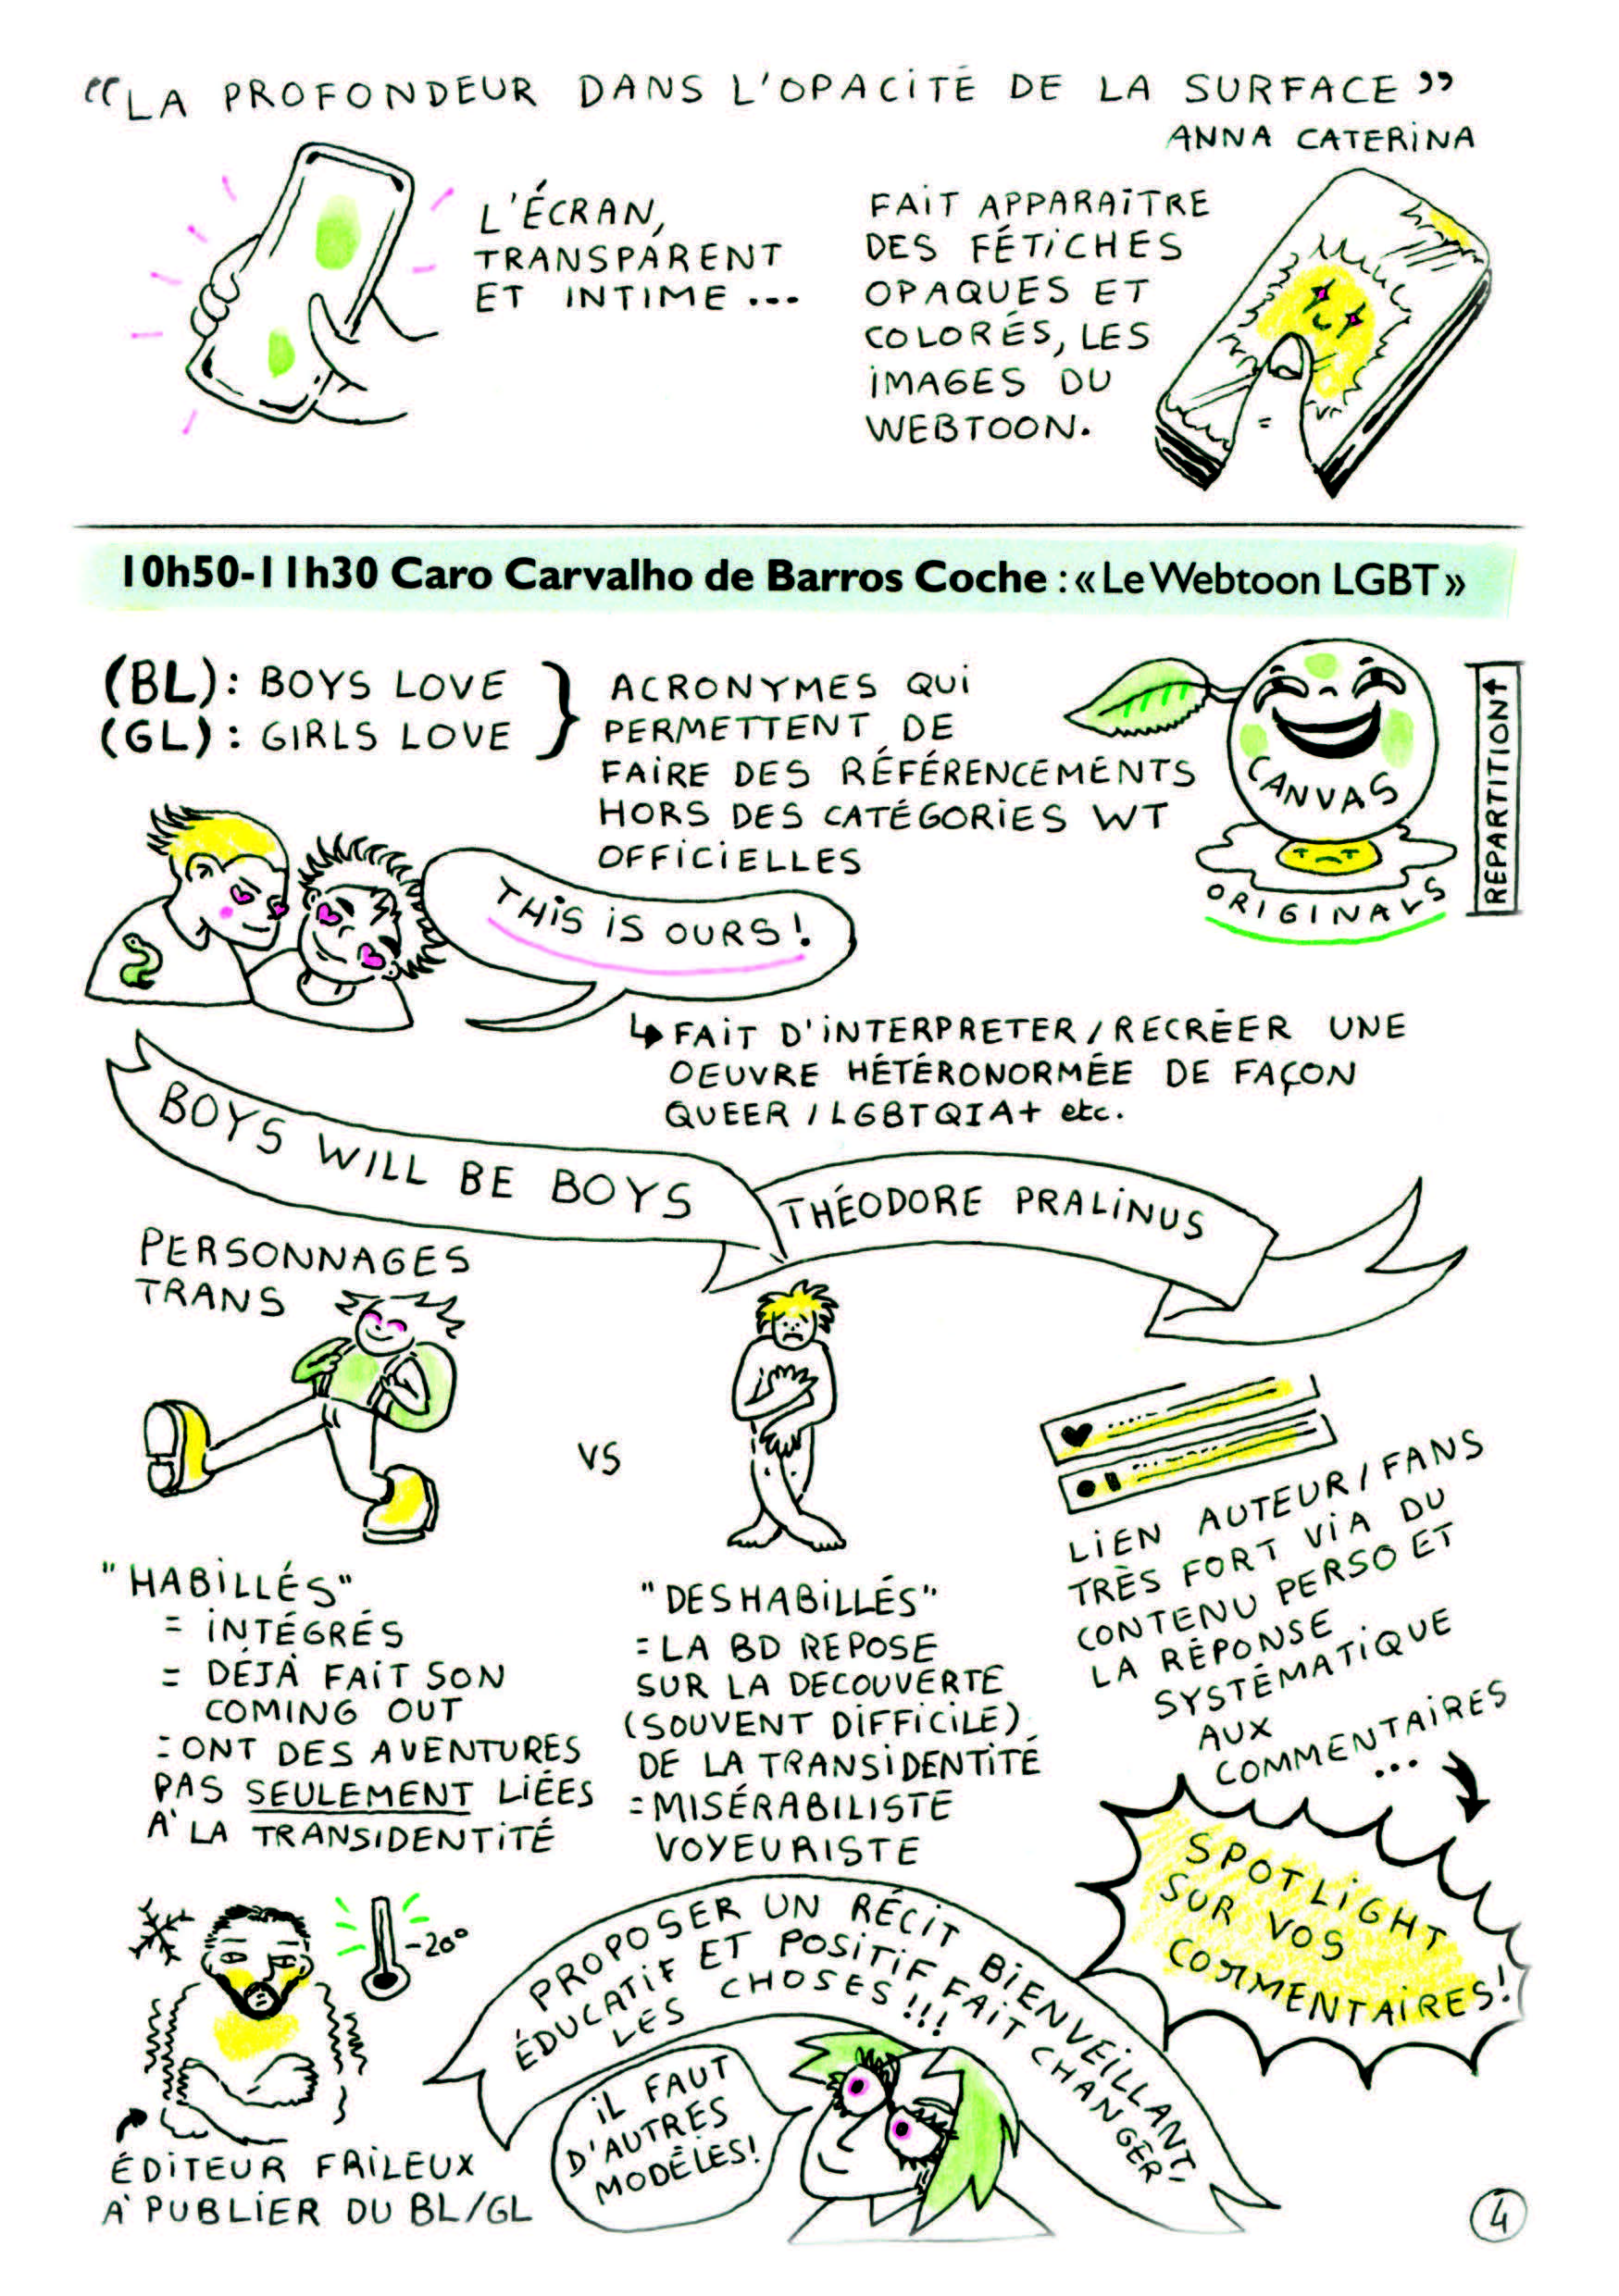 “LA PROFONDEUR DANS L'OPACITÉ DE LA SURFACE”
ANNA CATERINA
L'ÉCRAN,
TRANSPARENT
ET INTIME...
FAIT APPARAITRE
DES FÉTICHES
OPAQUES ET
COLORÉS, LES
IMAGES DU
WEBTOON.
10h50-11h30 Caro Carvalho de Barros Coche : « Le Webtoon LGBT »
(BL): BOYS LOVE
(GL): GIRLS LOVE
ACRONYMES QUI
PERMETTENT DE
FAIRE DES RÉFÉRENCEMENTS
HORS DES CATÉGORIES WT
OFFICIELLES
CANVAS
ORIGINALS
REPARTITION
THIS IS OURS!
↳ FAIT D'INTERPRETER/RECRÉER UNE
OEUVRE HÉTÉRONORMÉE DE FAÇON
QUEER / LGBTQIA+ etc.
BOYS WILL BE BOYS
THÉODORE PRALINUS
PERSONNAGES
TRANS
VS
"HABILLÉS"
= INTÉGRÉS
= DÉJÀ FAIT SON
COMING OUT
= ONT DES AVENTURES
PAS SEULEMENT LIÉES
À LA TRANSIDENTITÉ
"DESHABILLÉS"
= LA BD REPOSE
SUR LA DECOUVERTE
(SOUVENT DIFFICILE)
DE LA TRANSIDENTITÉ
= MISÉRABILISTE
VOYEURISTE
LIEN AUTEUR/FANS
TRÈS FORT VIA DU
CONTENU PERSO ET
LA RÉPONSE
SYSTÉMATIQUE
AUX
COMMENTAIRES
...
SPOTLIGHT
SUR VOS
COMMENTAIRES!
-20°
ÉDITEUR FRILEUX
À PUBLIER DU BL/GL
PROPOSER UN RÉCIT BIENVEILLANT,
ÉDUCATIF ET POSITIF FAIT CHANGER
LES CHOSES!!!
IL FAUT
D'AUTRES
MODÈLES!
4